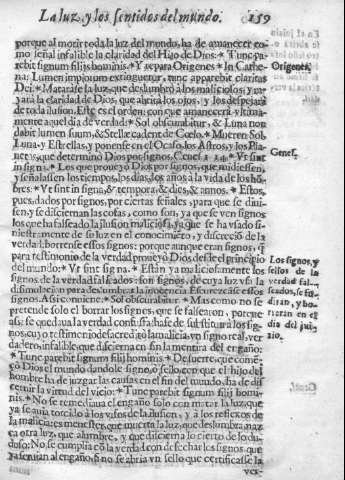 La luz, y los sentidos del mundo. 159
porque al morir toda la luz del mundo, ha de amanecer co-
mo señal infalible la claridad del Hijo de Dios: * Tunc pa-
rebit signum filij hominis. * Y separa Origenes * In Cathe-
na: Lumen impiorum extinguetur, tunc apparebit claritas
Dei. * Matarase la luz, que deslumbrò a los maliciosos; y ra-
yarà la claridad de Dios, que abrira los ojos, y los despejarà
de toda ilusion. Este es el orden: con que amanecerà
mente aquel dia de verdad: * Sol obscurabitur, & Luna non
dabit lumen suum, & Stellæ cadent de Cœlo. * Mueren Sol,
Luna, y Estrellas, y ponense en el Ocaso, los Astros, y los Pla-
netas, que determinò Dios por signos. Genes. 1 * Vt sint
in signa. * Les que proveyò Dios por signos, que midiessen,
y señalassen los tiempos, los dias, los años à la vida de los hõ-
bres. * Vt sint in signa, & tempora, & dies, & annos. * Estos,
pues, dados por signos, por ciertas señales, para que se divi-
sen, y se disciernan las cosas, como son, ya que se ven signos
los que ha falseado la ilusion maliciosa, ya que se ha vsado si-
niestramente de su luz en el conocimiẽto, y discreciõ de la
verdad: borrense essos signos: porque aunque eran signos, q̃
para testimonio de la verdad proveyò Dios desde el principio
del mundo: * Vt sint in signa. * Estàn ya maliciosamente los
signos de la verdad falseados: son signos, de cuya luz vsa la
dissimulacion para deslumbrar la inocencia. Escurezcãse essos
signos. Assi conviene. * Sol obscurabitur. * Mas como no se
pretende solo el borrar los signos, que se falsearon, porque
assi se quedava la verdad confusa; hase de substituir à los sig-
nos, cuyo testimonio desacreditò la malicia, vn signo real, ver-
dadero, infalible, que discierna en fin la mentira del engaño:
* Tunc parebit signum filij hominis. * De suerte, que comẽ-
çò Dios el mundo dandole signo, ò sello, con que el hijo del
hombre ha de juzgar las causas en el fin del mundo, ha de dis-
cernir la virtud del vicio: * Tunc parebit signum filij homi-
nis. * No se remediava el engaño solo con matar la luz, que
ya se avia torcido à los visos de la ilusion, y à los reflexos de
la malicia; es menester, que muerta la luz, que deslumbra, naz-
ca otra luz, que alumbre, y que discierna lo cierto de lo du-
doso: No se cumplia cõ la verdad con desechar los signos, que
ya servian al engaño, si no se abria vn sello que certificasse la
ver-
Origenes,
Genes.
Los signos, y
sellos de la
verdad fal-
seados, se
diran, y bo-
rraràn en el
dia del jui-
zio.